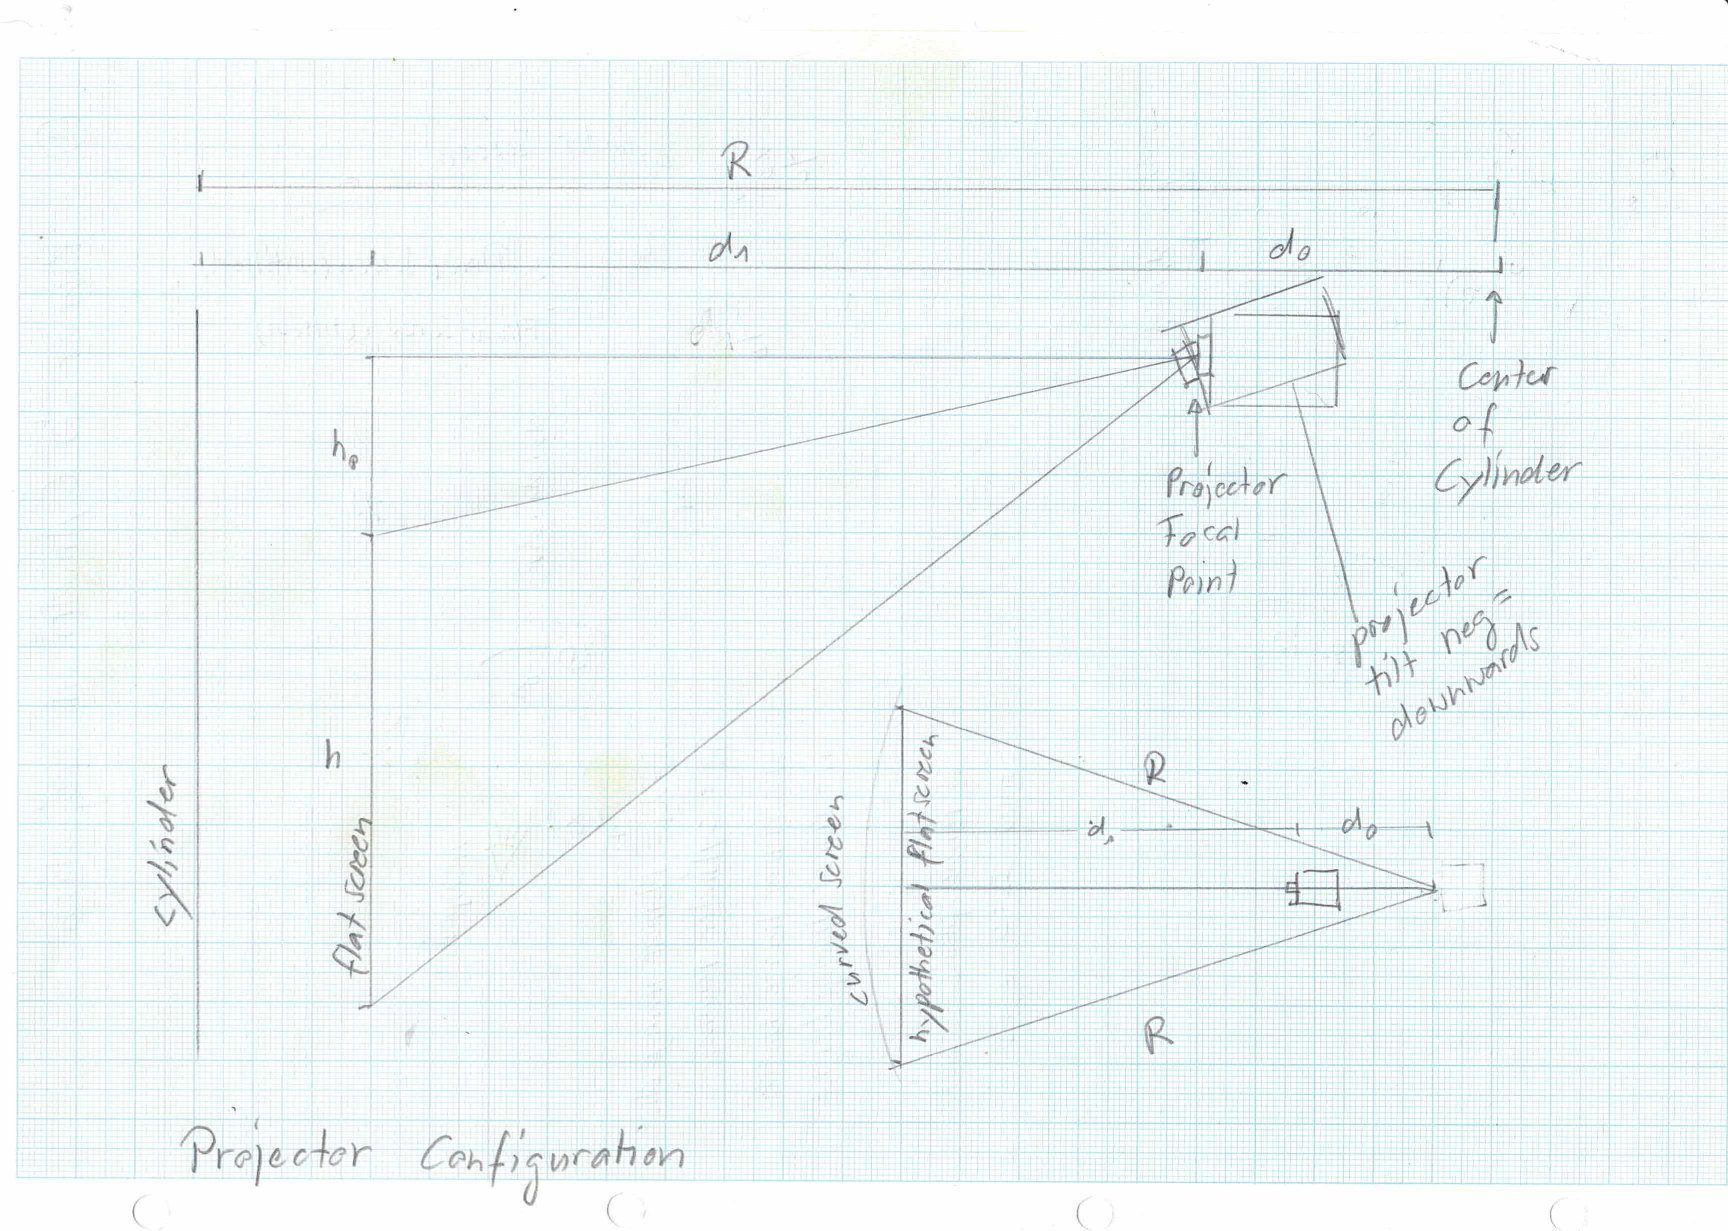 R
d1
d0
Center
of
Cylinder
h0
Projector
Focal
Point
projector
tilt neg =
downwards
h
cylinder
flat screen
R
curved screen
hypothetical flat screen
d1
d0
R
Projector Configuration